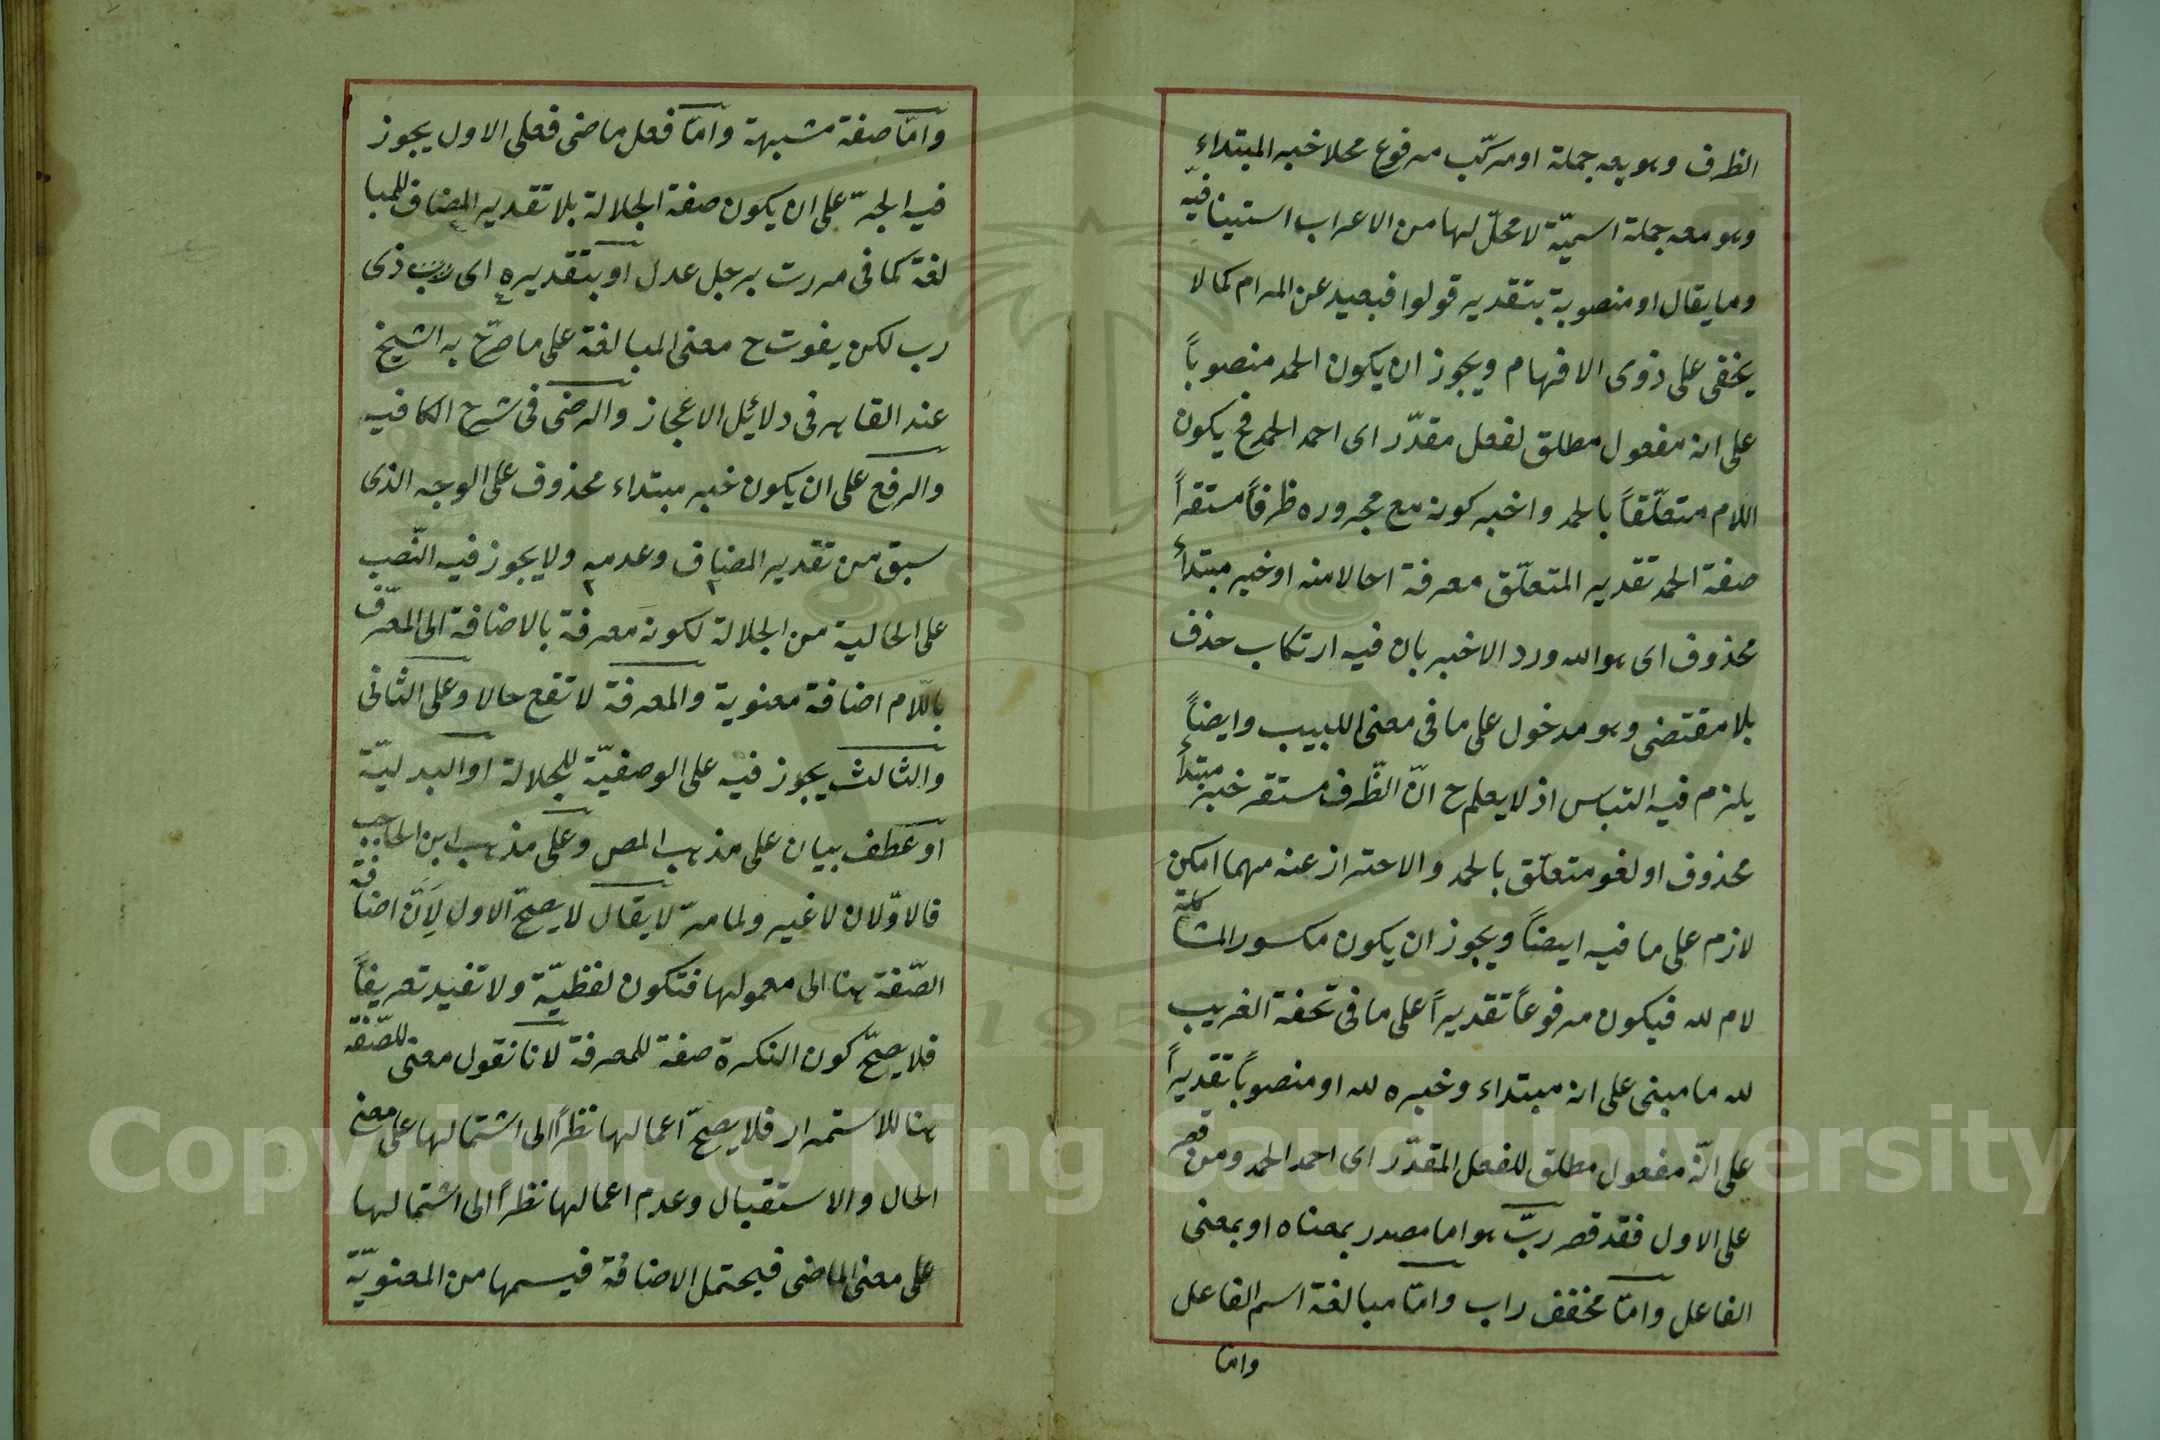 الظرف وهو معه جملة او مركّب مرفوع محلا خبر المبتداء
وهو معه جملة اسميّة لا محلّ لها من الاعراب استينافيّة
وما يقال او منصوبة بتقدير قولوا فبعيد عن المرام كما لا
يخفى على ذوى الافهام ويجوز ان يكون الحمد منصوباً
على انه مفعول مطلق لفعل مقدّر اى احمد الحمد فح يكون
اللام متعلّقاً بالحمد واخبر كونه مع مجروره ظرفاً مستقراً
صفة الحمد تقدير المتعلّق معرفة احالا منه او خبر مبتدأ
محذوف اى هو الله ورد الاخبر بان فيه ارتكاب حذف
بلا مقتضى وهو مدخول على ما فى معنى اللبيب وايضاً
يلزم فيه التباس اذ لا يعلم ح انّ الظّرف مستقر خبر مبتدأ
محذوف او لغو متعلّق بالحمد والاحتراز عنه مهما امكن
لازم على ما فيه ايضاً ويجوز ان يكون مكسور المشاكلة
لام لله فيكون مرفوعاً تقديراً على ما فى تحفة الغريب
لله ما مبنى على انه مبتداء وخبره لله او منصوباً تقديراً
على انّه مفعول مطلق للفعل المقدّر اى احمد الحمد ومن قصر
على الاول فقد قصر ربّ هو اما مصدر بمعناه او بمعنى
الفاعل وامّا مخفف راب وامّا مبالغة اسم الفاعل
وامّا
وامّا صفة مشبهة وامّا فعل ماضى فعلى الاول يجوز
فيه الجرّ على ان يكون صفة الجلالة بلا تقدير المضاف للمبا
لغة كما فى مررت برجل عدل او بتقديره اى ذى
رب لكن يفوت ح معنى المبالغة على ما صرّح به الشيخ
عبد القاهر فى دلائل الاعجاز والرضى فى شرح الكافيه
والرفع على ان يكون خبر مبتداء محذوف على الوجه الذى
سبق من تقدير المضاف وعدمه ولا يجوز فيه النّصب
على الحالية من الجلالة لكونه معرفة بالاضافة الى المعرّف
باللّام اضافة معنوية والمعرفة لا تقع حالا وعلى الثانى
والثالث يجوز فيه على الوصفيّة للجلالة او البدليّة
او عطف بيان على مذهب المص وعلى مذهب ابن الحاجب
فالاوّلان لا غير ولما مرّ لا يقال لا يصحّ الاول لانّ اضافة
الصّفة هنا الى معمولها فتكون لفظيّة ولا تفيد تعريفاً
فلا يصحّ كون النكرة صفة للمعرفة لانا نقول معنى للصّفة
هنا للاستمرار فلا يصحّ اعمالها نظراً الى اشتمالها على معنى
الحال والاستقبال وعدم اعمالها نظراً الى اشتمالها
على معنى الماضى فيحتمل الاضافة قيسمها من المعنويّة
Copyright © King Saud University
1957